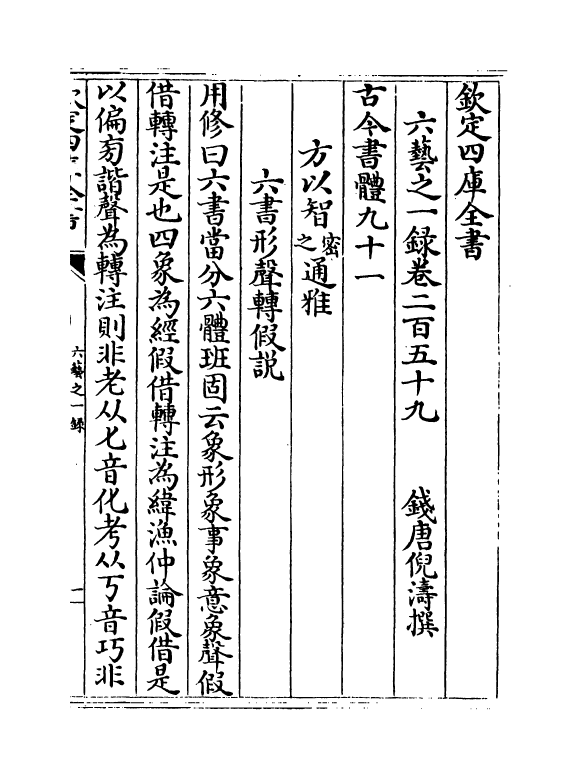 欽定四庫全書
六藝之一録卷二百五十九　　錢唐倪濤撰
古今書體九十一
方以智密之通雅
六書形聲轉假説
用修曰六書當分六體班固云象形象事象意象聲假
借轉注是也四象為經假借轉注為緯漁仲論假借是
以偏旁諧聲為轉注則非老从匕音化考从丂音巧非
欽定四庫全書
六藝之一録
一